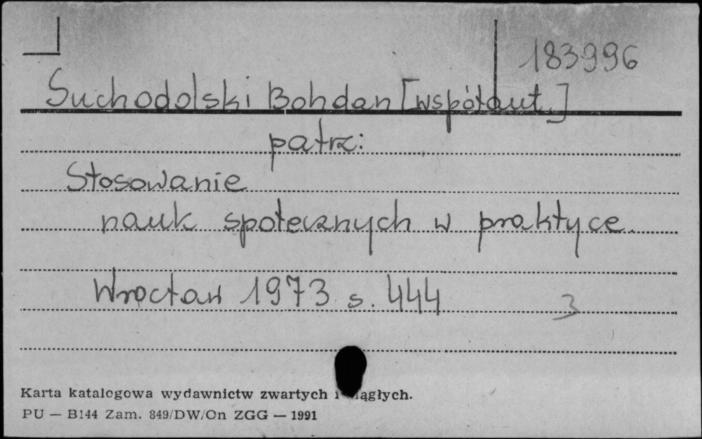 183996
Suchodolski Bohdan [współaut.]
patrz:
Stosowanie
nauk społecznych w praktyce.
Wrocław 1973 s. 444
3
Karta katalogowa wydawnictw zwartych i ciągłych.
PU — B144 Zam. 849/DW/On ZGG — 1991